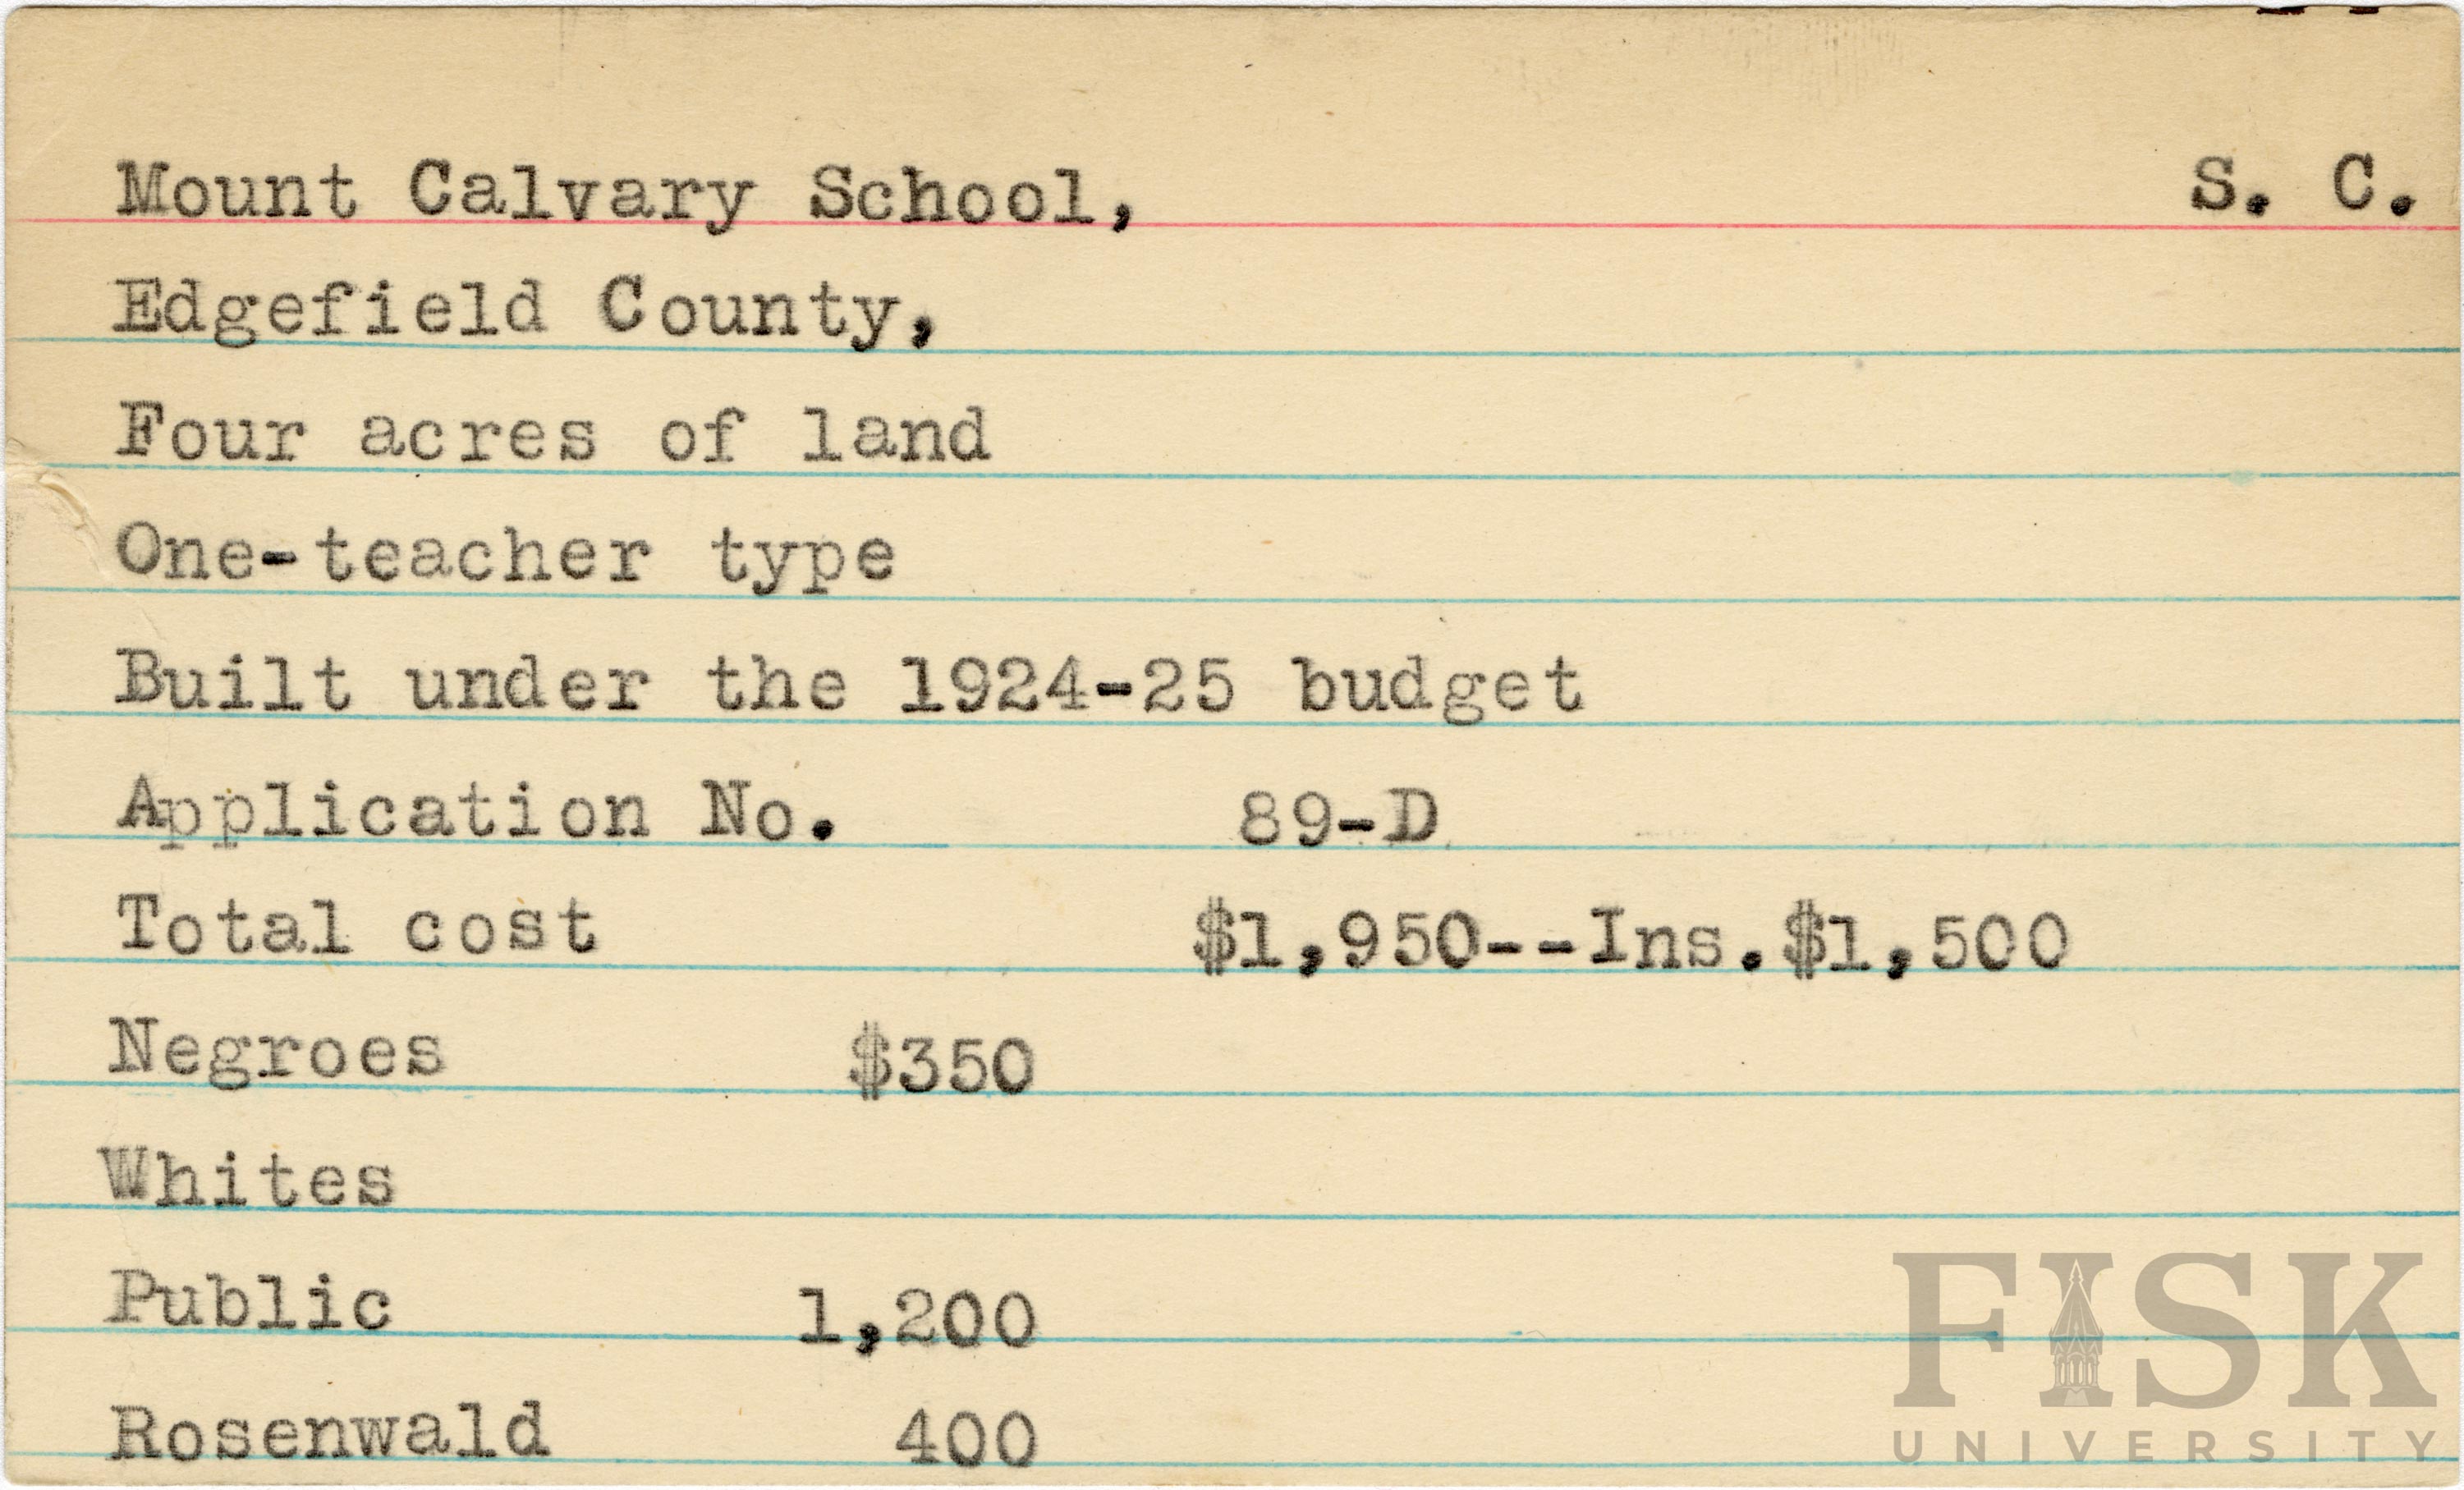 Mount Calvary School, S. C.
Edgefield County,
Four acres of land
One-teacher type
Built under the 1924-25 budget
Application No. 89-D
Total cost $1,950--Ins.$1,500
Negroes $350
Whites
Public 1,200
Rosenwald 400
FISK
UNIVERSITY